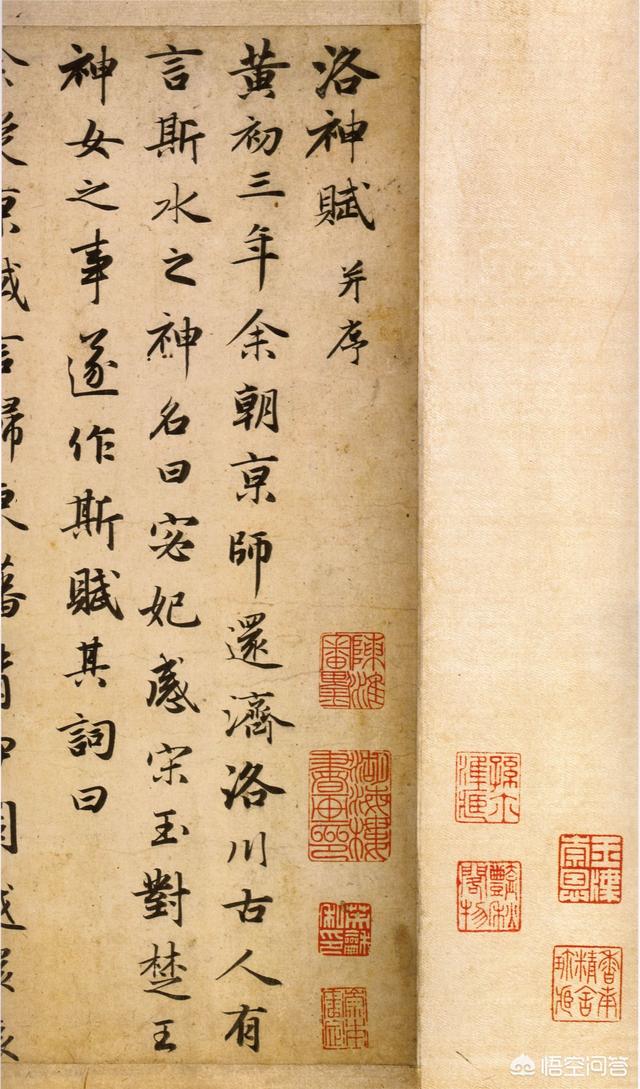 洛神賦 并序
黃初三年余朝京師還濟洛川古人有
言斯水之神名曰宓妃感宋玉對楚王
神女之事遂作斯賦其詞曰
悟空问答